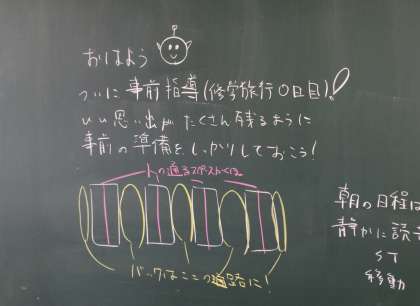 おはよう
ついに事前指導(修学旅行0日目)!
いい思い出がたくさん残るように
事前の準備をしっかりしておこう!
人の通るスペースかくほ
バックはここの通路に!
朝の日程は
静かに読
ST
移動